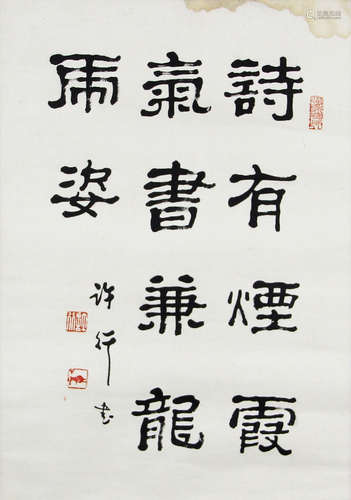 詩有煙霞
氣書兼龍
虎姿
許行書